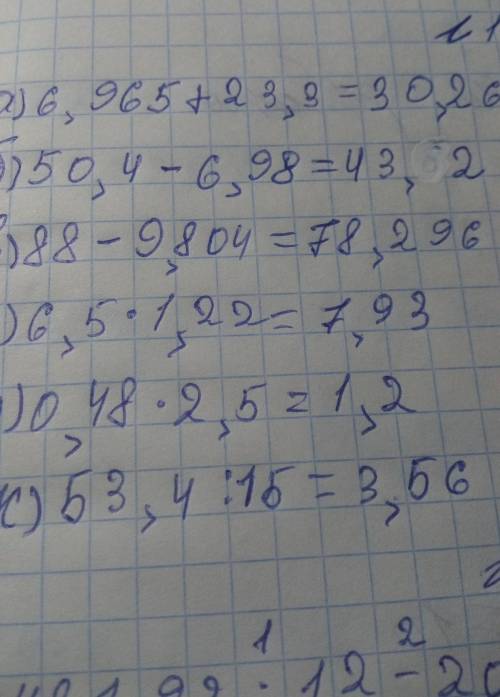 1
а) 6,965+23,3=30,26
б) 50,4-6,98=43, 2
в) 88-9,804=78,296
) 6,5·1,22=7,93
) 0,48·2,5=1,2
ж) 53,4:15=3,56
1 2
·12-20